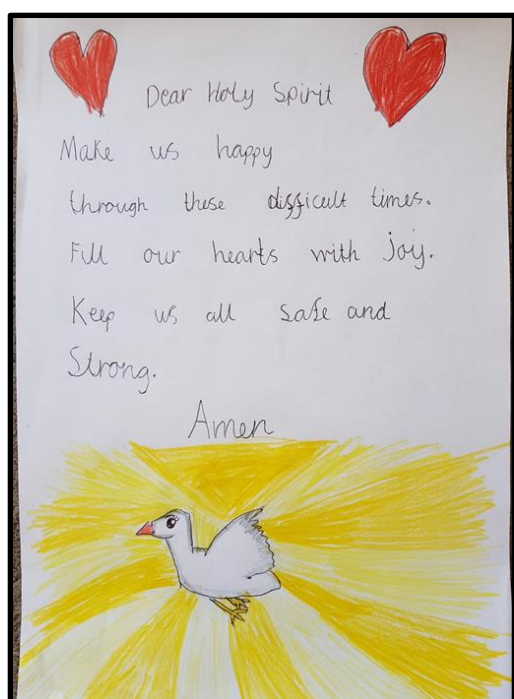 Dear Holy Spirit
Make us happy
through these difficult times.
Fill our hearts with joy.
Keep us all safe and
Strong.
Amen